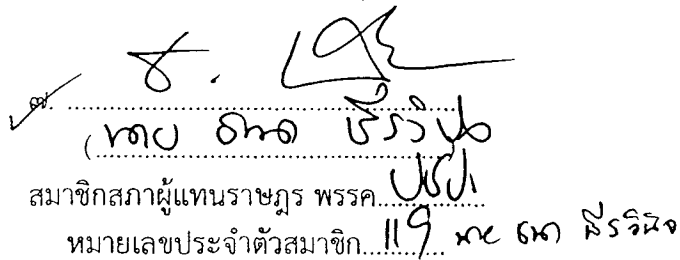 ๗. ........................................
(นาย ธนา ชีรวินิจ
สมาชิกสภาผู้แทนราษฎร พรรค ปชป.
หมายเลขประจำตัวสมาชิก 119 นาย ธนา ชีรวินิจ